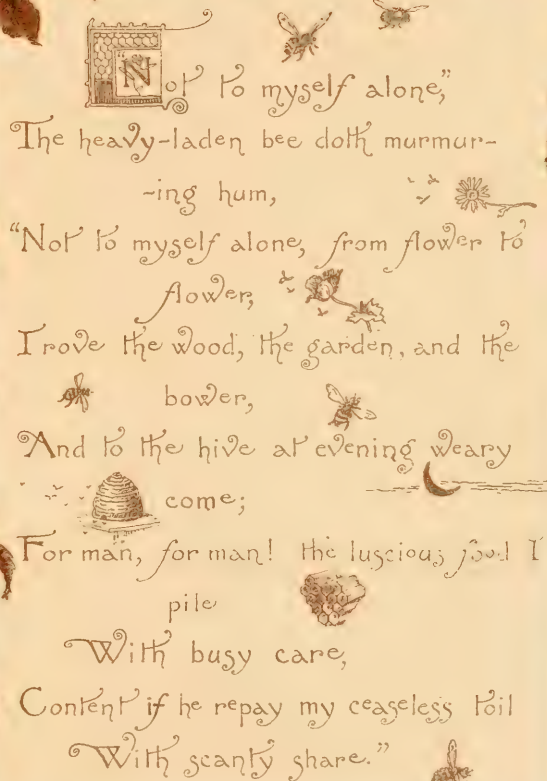 "Not to myself alone,"
The heavy-laden bee doth murmur-
-ing hum,
"Not to myself alone, from flower to
flower,
I rove the wood, the garden, and the
bower,
And to the hive at evening weary
come;
For man, for man! the luscious food I
pile
With busy care,
Content if he repay my ceaseless toil
With scanty share."